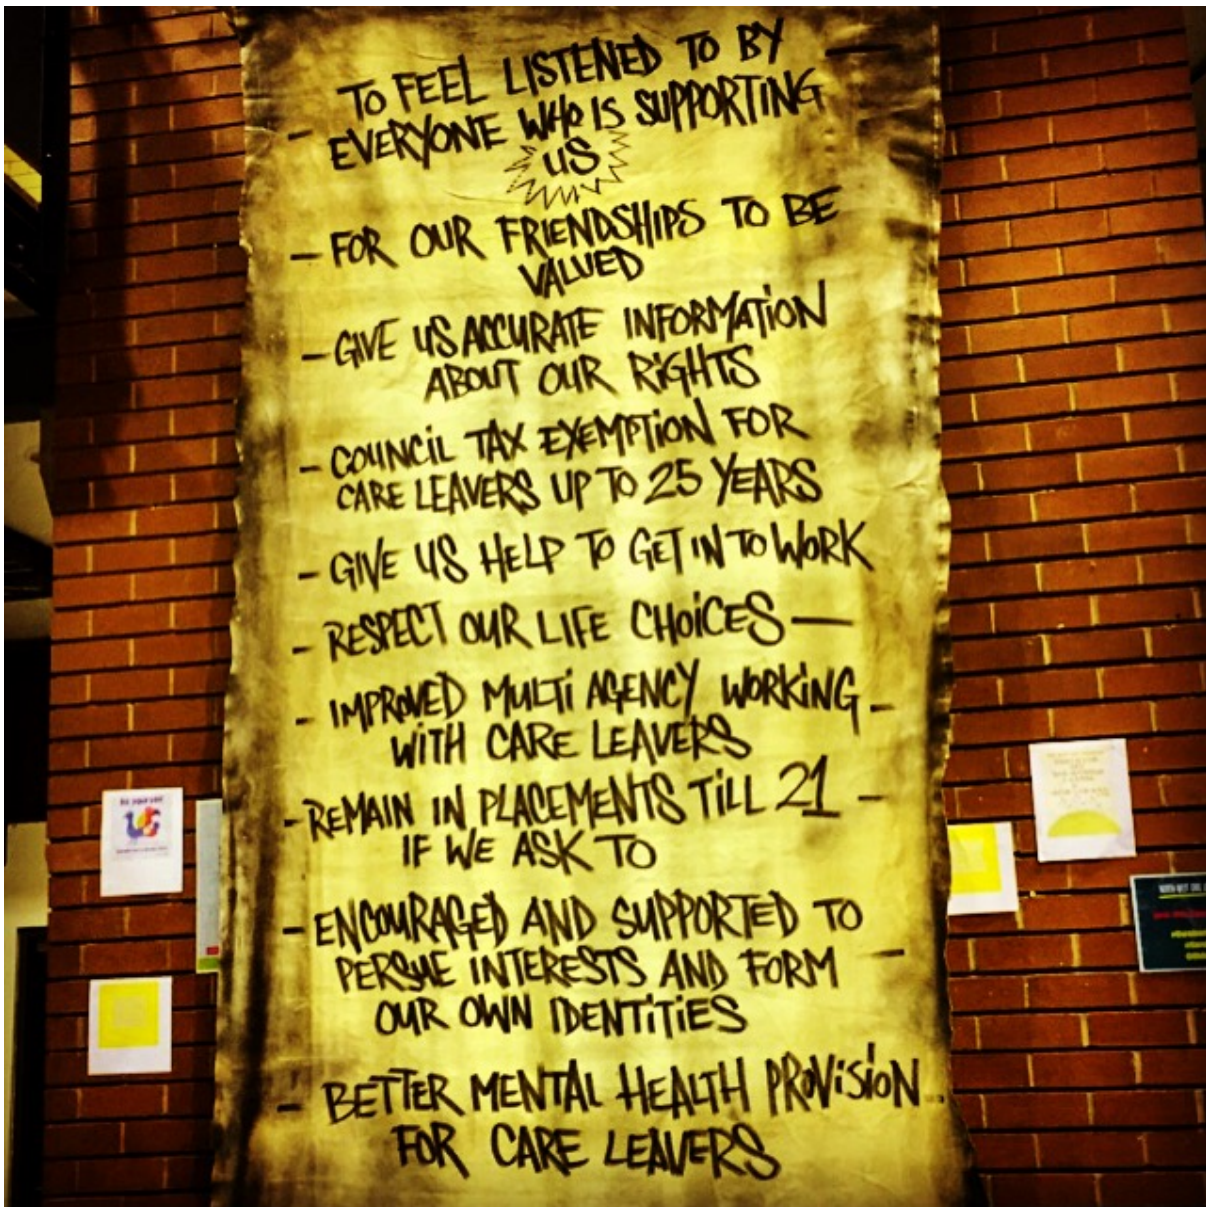 TO FEEL LISTENED TO BY
- EVERYONE WHO IS SUPPORTING
US
- FOR OUR FRIENDSHIPS TO BE
VALUED
- GIVE US ACCURATE INFORMATION
ABOUT OUR RiGHTS
- COUNCiL TAX EXEMPTiON FOR
CARE LEAVERS UP TO 25 YEARS
- GIVE US HELP TO GET IN TO WORK
- RESPECT OUR LIFE CHOiCES -
- IMPROVED MULTi AGENCY WORKiNG -
WITH CARE LEAVERS
- REMAIN IN PLACEMENTS TiLL 21 -
IF WE ASK TO
- ENCOURAGED AND SUPPORTED TO
PERSUE INTERESTS AND FORM -
OUR OWN IDENTiTiES
- BETTER MENTAL HEALTH PROViSiON
FOR CARE LEAVERS